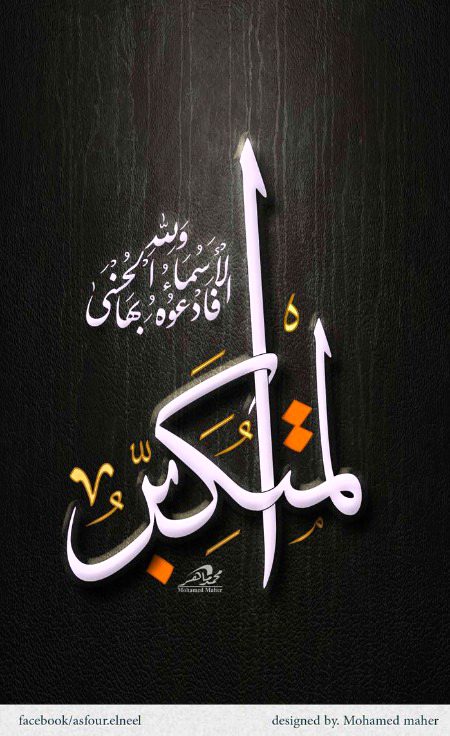 وَلِلَّهِ
الْأَسْمَاءُ الْحُسْنَىٰ
فَادْعُوهُ بِهَا
المتكبِّرُ
محمد ماهر
Mohamed Maher
facebook/asfour.elneel
designed by. Mohamed maher